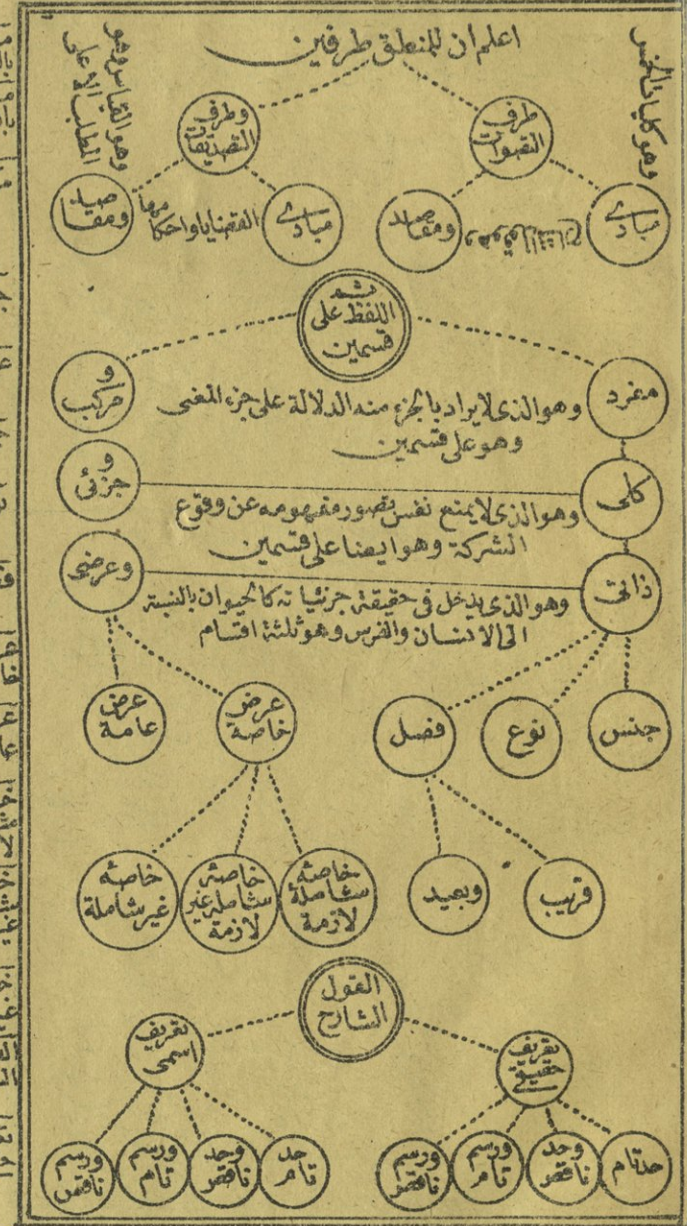 اعلم ان للمنطق طرفين
وهو كليات الخمس
طرف
التصورات
وطرف
التصديقات
وهو القياس وهو
المطلب الاعلى
مبادى
وهو القول الشارح
ومقاصد
مبادى
القضايا واحكامها
ومقاصد
ثم
اللفظ على
قسمين
مفرد
وهو الذى لا يراد بالجزء منه الدلالة على جزء المعنى
وهو على قسمين
و
مركب
كلى
وهو الذى لا يمنع نفس تصور مفهومه عن وقوع
الشركة وهو ايضا على قسمين
و
جزئى
ذاتى
وهو الذى يدخل فى حقيقة جزئياته كالحيوان بالنسبة
الى الانسان والفرس وهو ثلثة اقسام
وعرضى
جنس
نوع
فصل
عرض
خاصة
عرض
عامة
قريب
وبعيد
خاصة
شاملة
لازمة
خاصة
شاملة غير
لازمة
خاصة
غير شاملة
القول
الشارح
تعريف
حقيقى
تعريف
اسمى
حد تام
وحد
ناقص
ورسم
تام
ورسم
ناقص
حد
تام
وحد
ناقص
ورسم
تام
ورسم
ناقص